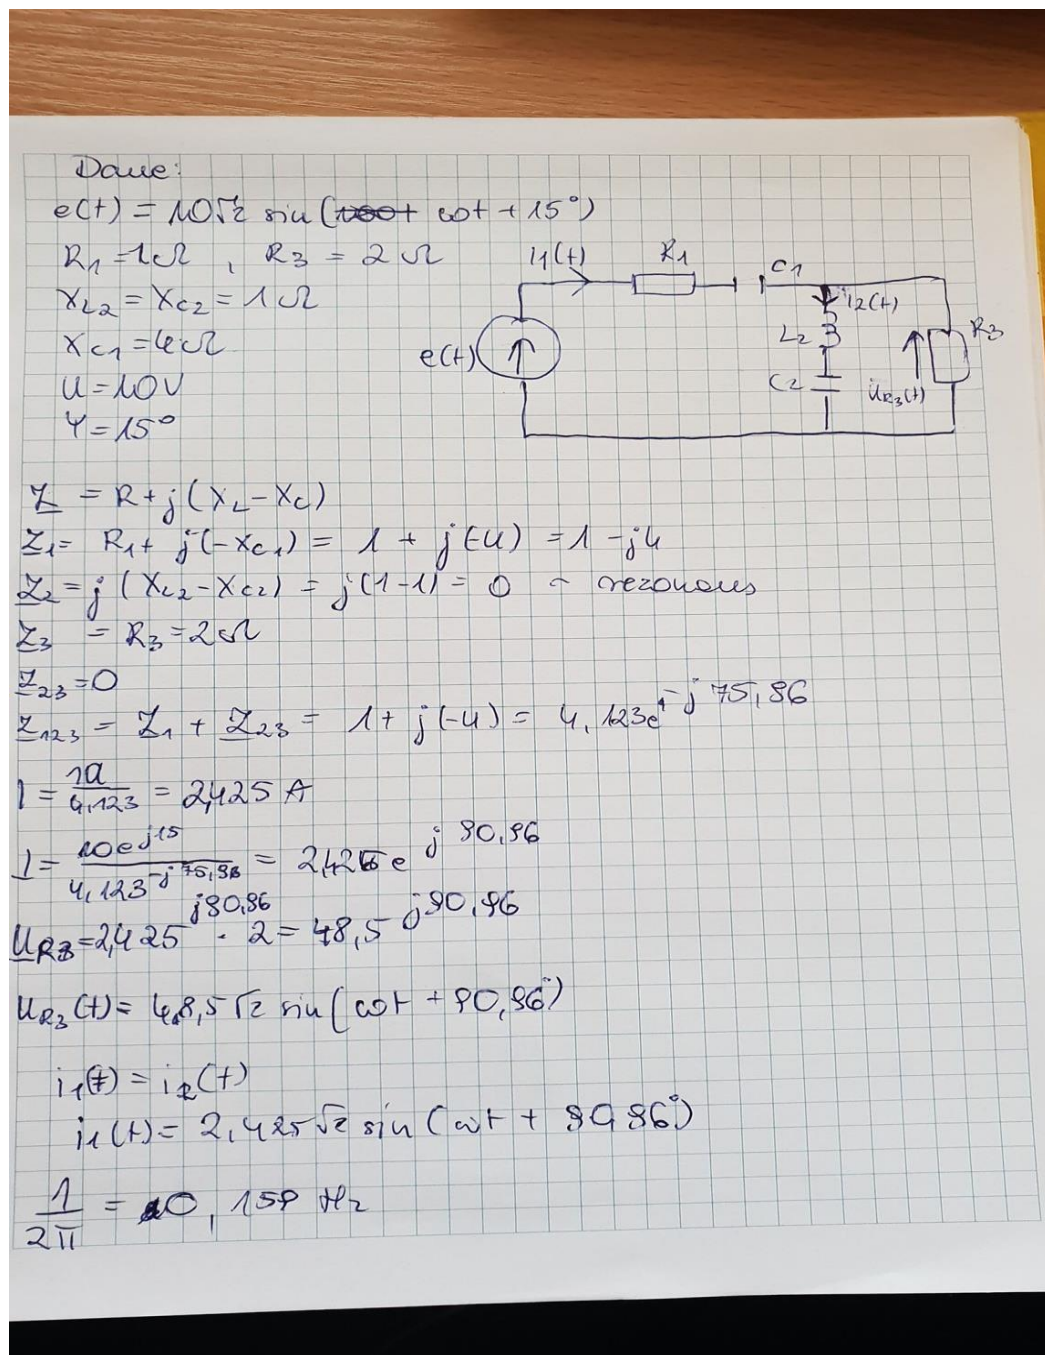 Dane:
e(t) = 10√2 sin( ωt + 15°)
R1 = 1Ω , R3 = 2Ω
XL2 = XC2 = 1Ω
XC1 = 4Ω
U = 10V
Ψ = 15°
i1(t)
R1
C1
i2(t)
L2
R3
e(t)
C2
uR3(t)
Z = R + j(XL - XC)
Z1 = R1 + j(-XC1) = 1 + j(-4) = 1 - j4
Z2 = j(XL2 - XC2) = j(1-1) = 0 - rezonans
Z3 = R3 = 2Ω
Z23 = 0
Z123 = Z1 + Z23 = 1 + j(-4) = 4,123e^-j75,96
I = 10/4,123 = 2,425 A
I = 10e^j15/4,123^-j75,96 = 2,425 e^j90,96
UR3 = 2,425^j90,96 · 2 = 48,5^j90,96
uR3(t) = 48,5√2 sin(ωt + 90,96°)
i1(t) = i2(t)
i1(t) = 2,425√2 sin(ωt + 90,96°)
1/2π = 0,159 Hz